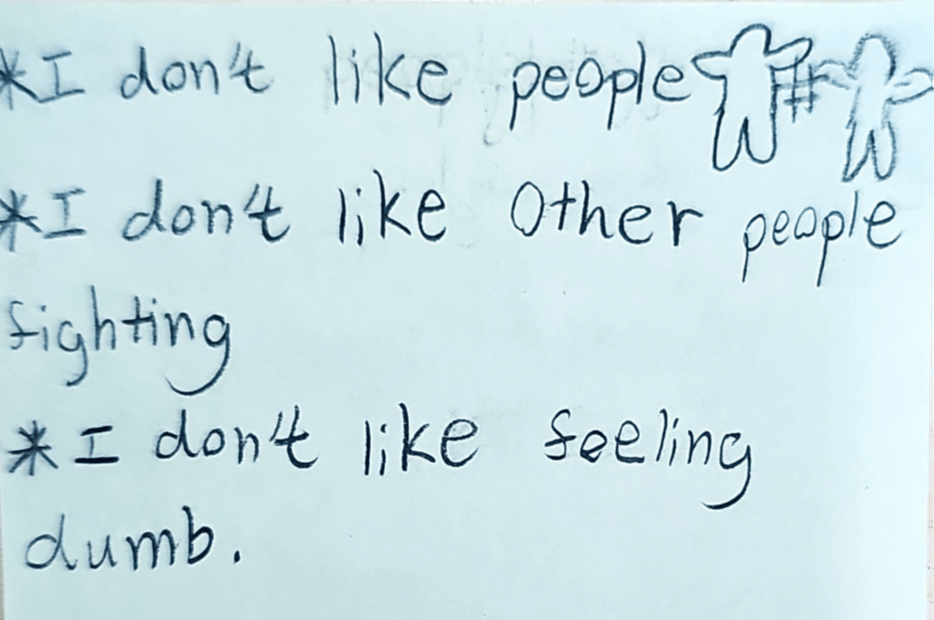 *I don't like people #
*I don't like Other people
fighting
*I don't like feeling
dumb.